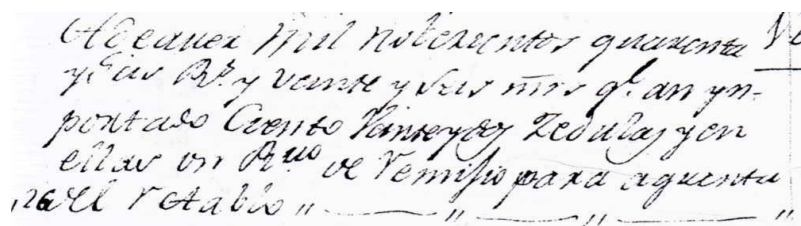 mil nobezientos quarenta
y seis Rs. y veinte y seis mrs qe. an yn-
portado Ciento Veinte y dos Zedulas y en
ellas un de remisio para aquenta
el retablo " — " — " —